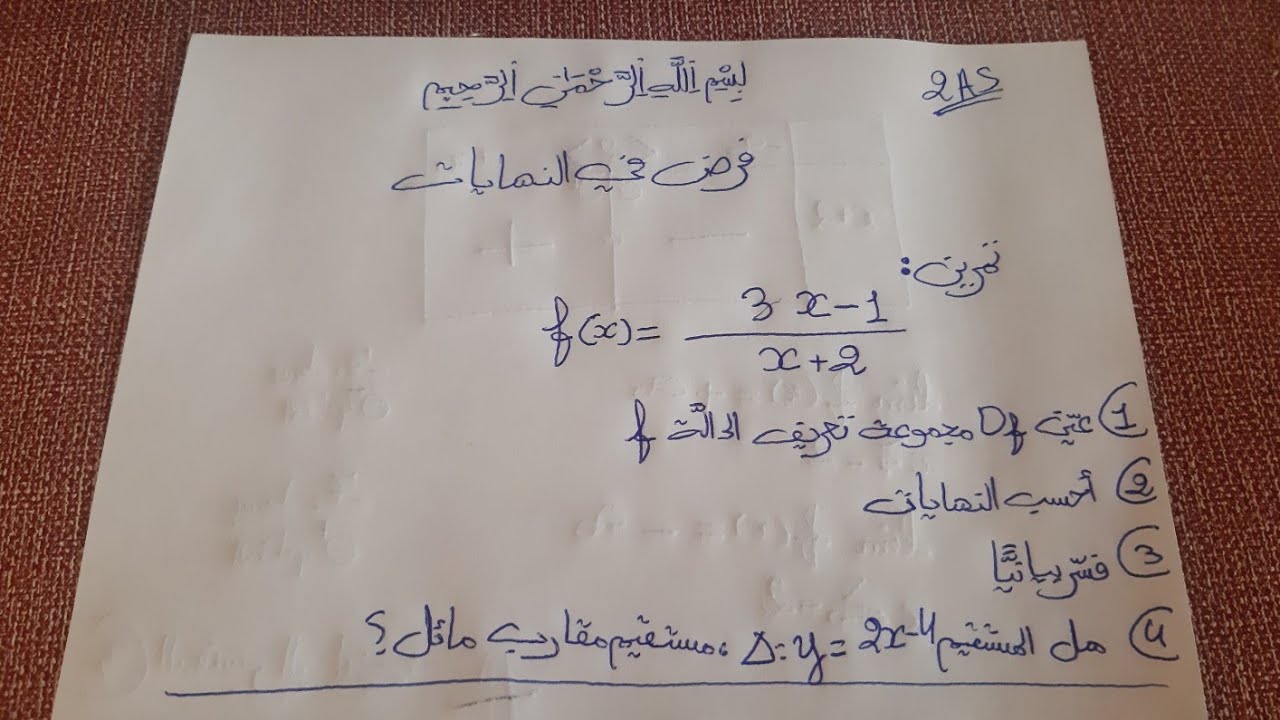 2AS
بِسْمِ اَللَّهِ اَلرَّحْمَنِ اَلرَّحِيمِ
فرض في النهايات
تمرين:
f(x)= 3x-1 / x+2
1) عيّن Df مجموعة تعريف الدالّة f
2) أحسب النهايات
3) فسّر بيانيًّا
4) هل المستقيم Δ: y=2x-4، مستقيم مقارب مائل؟